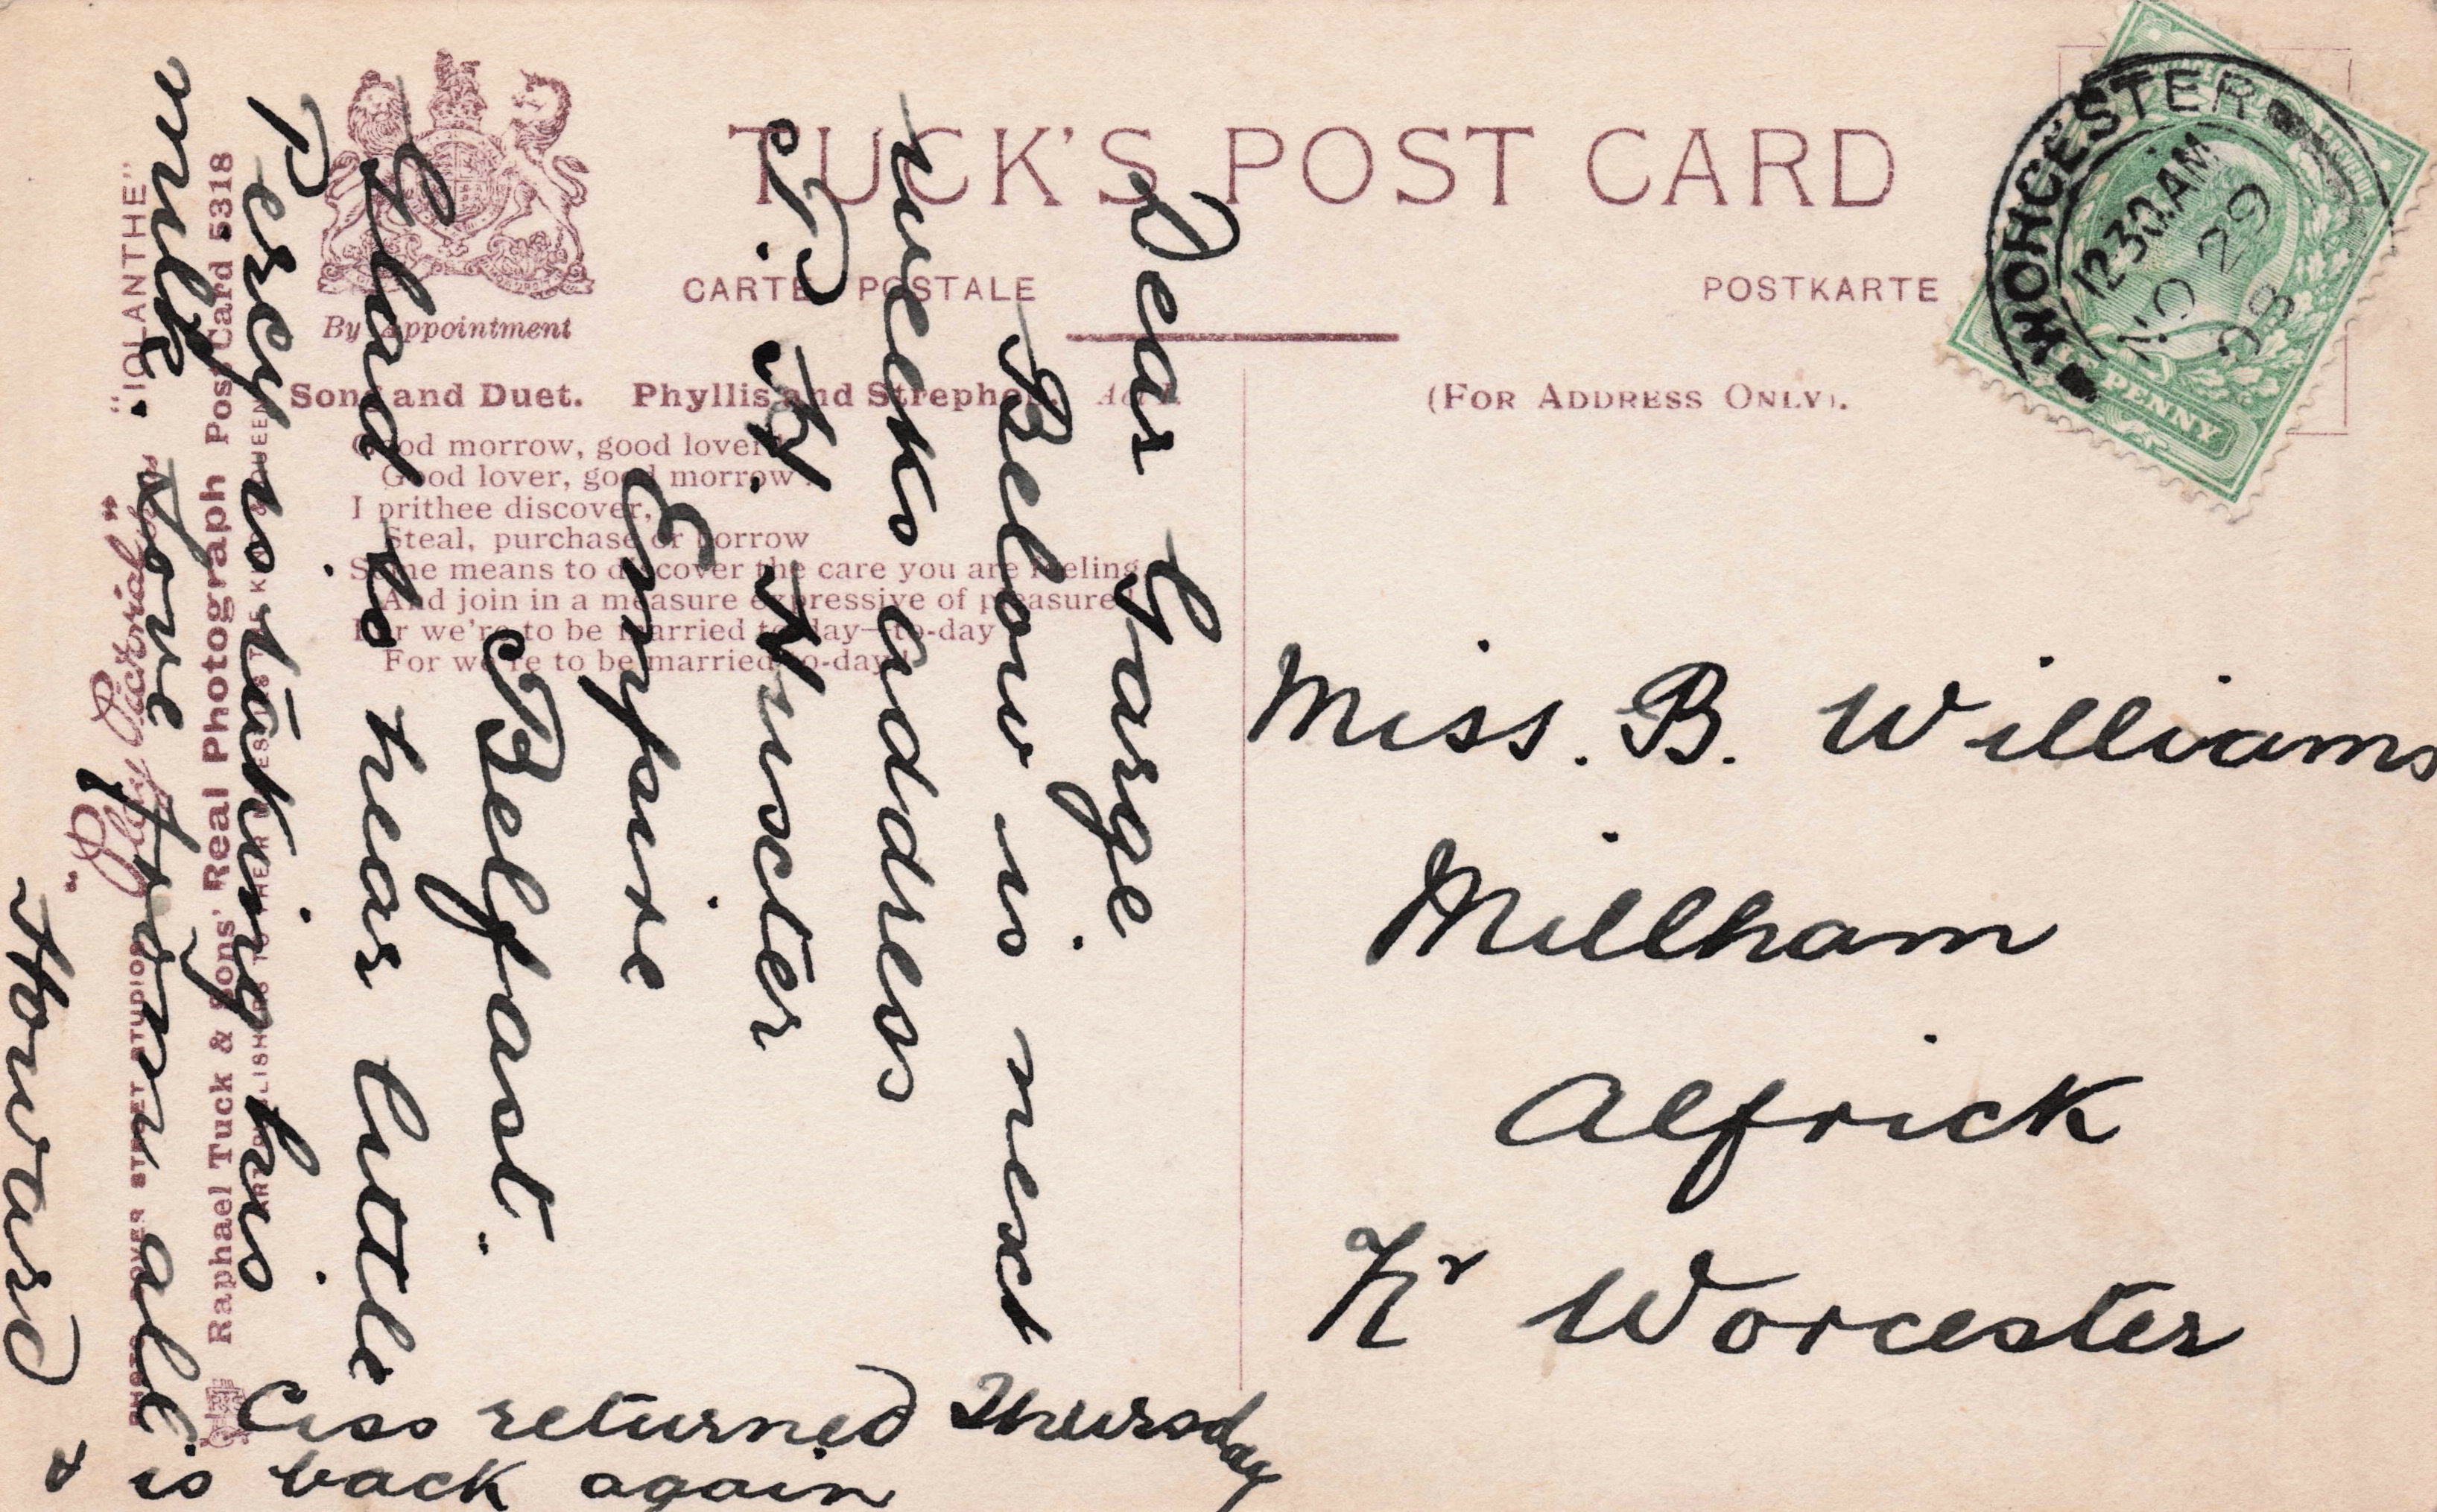 TUCK'S POST CARD
CARTE POSTALE
POSTKARTE
By Appointment
(FOR ADDRESS ONLY).
Song and Duet. Phyllis and Strephon. Act I.
Good morrow, good lover!
Good lover, good morrow!
I prithee discover,
Steal, purchase or borrow
Some means to discover the care you are feeling
And join in a measure expressive of pleasure!
For we're to be married to-day—to-day
For we're to be married to-day!
"IOLANTHE"
PHOTO DOVER STREET STUDIOS
Raphael Tuck & Sons' Real Photograph Post Card 5318
ART PUBLISHERS TO THEIR MAJESTIES THE KING & QUEEN
WORCESTER
12.30 AM
NO 29
08
POSTAGE
PENNY
Dear Garge
Below is next
weeks address
c/o
Empire
Belfast.
Glad to hear little
Percy is taking his
milk. Love from all
Howard
Ciss returned Thursday
& is back again
Miss. B. Williams
Millham
Alfrick
Nr Worcester